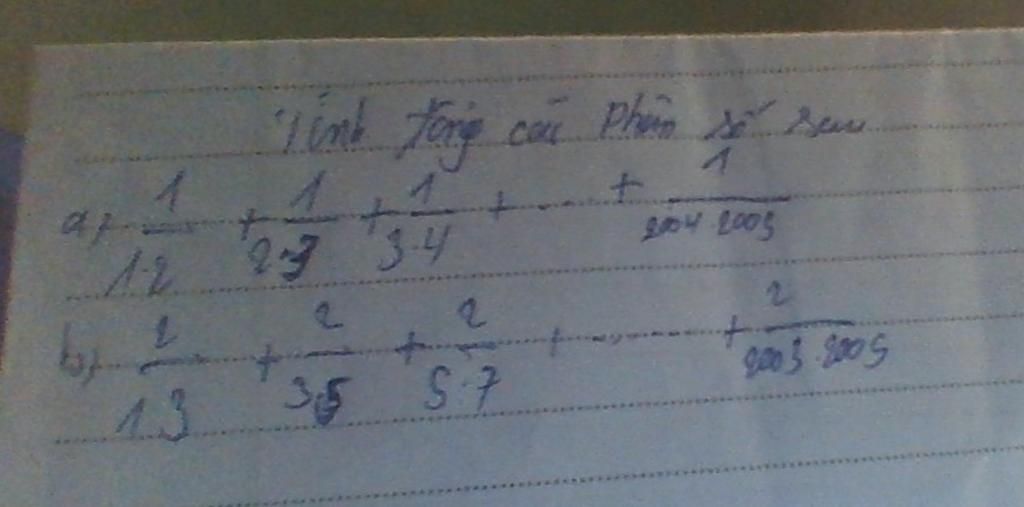 Tính tổng các phân số sau
a, 1/1.2 + 1/2.3 + 1/3.4 + ... + 1/2004.2005
b, 2/1.3 + 2/3.5 + 2/5.7 + ... + 2/2003.2005